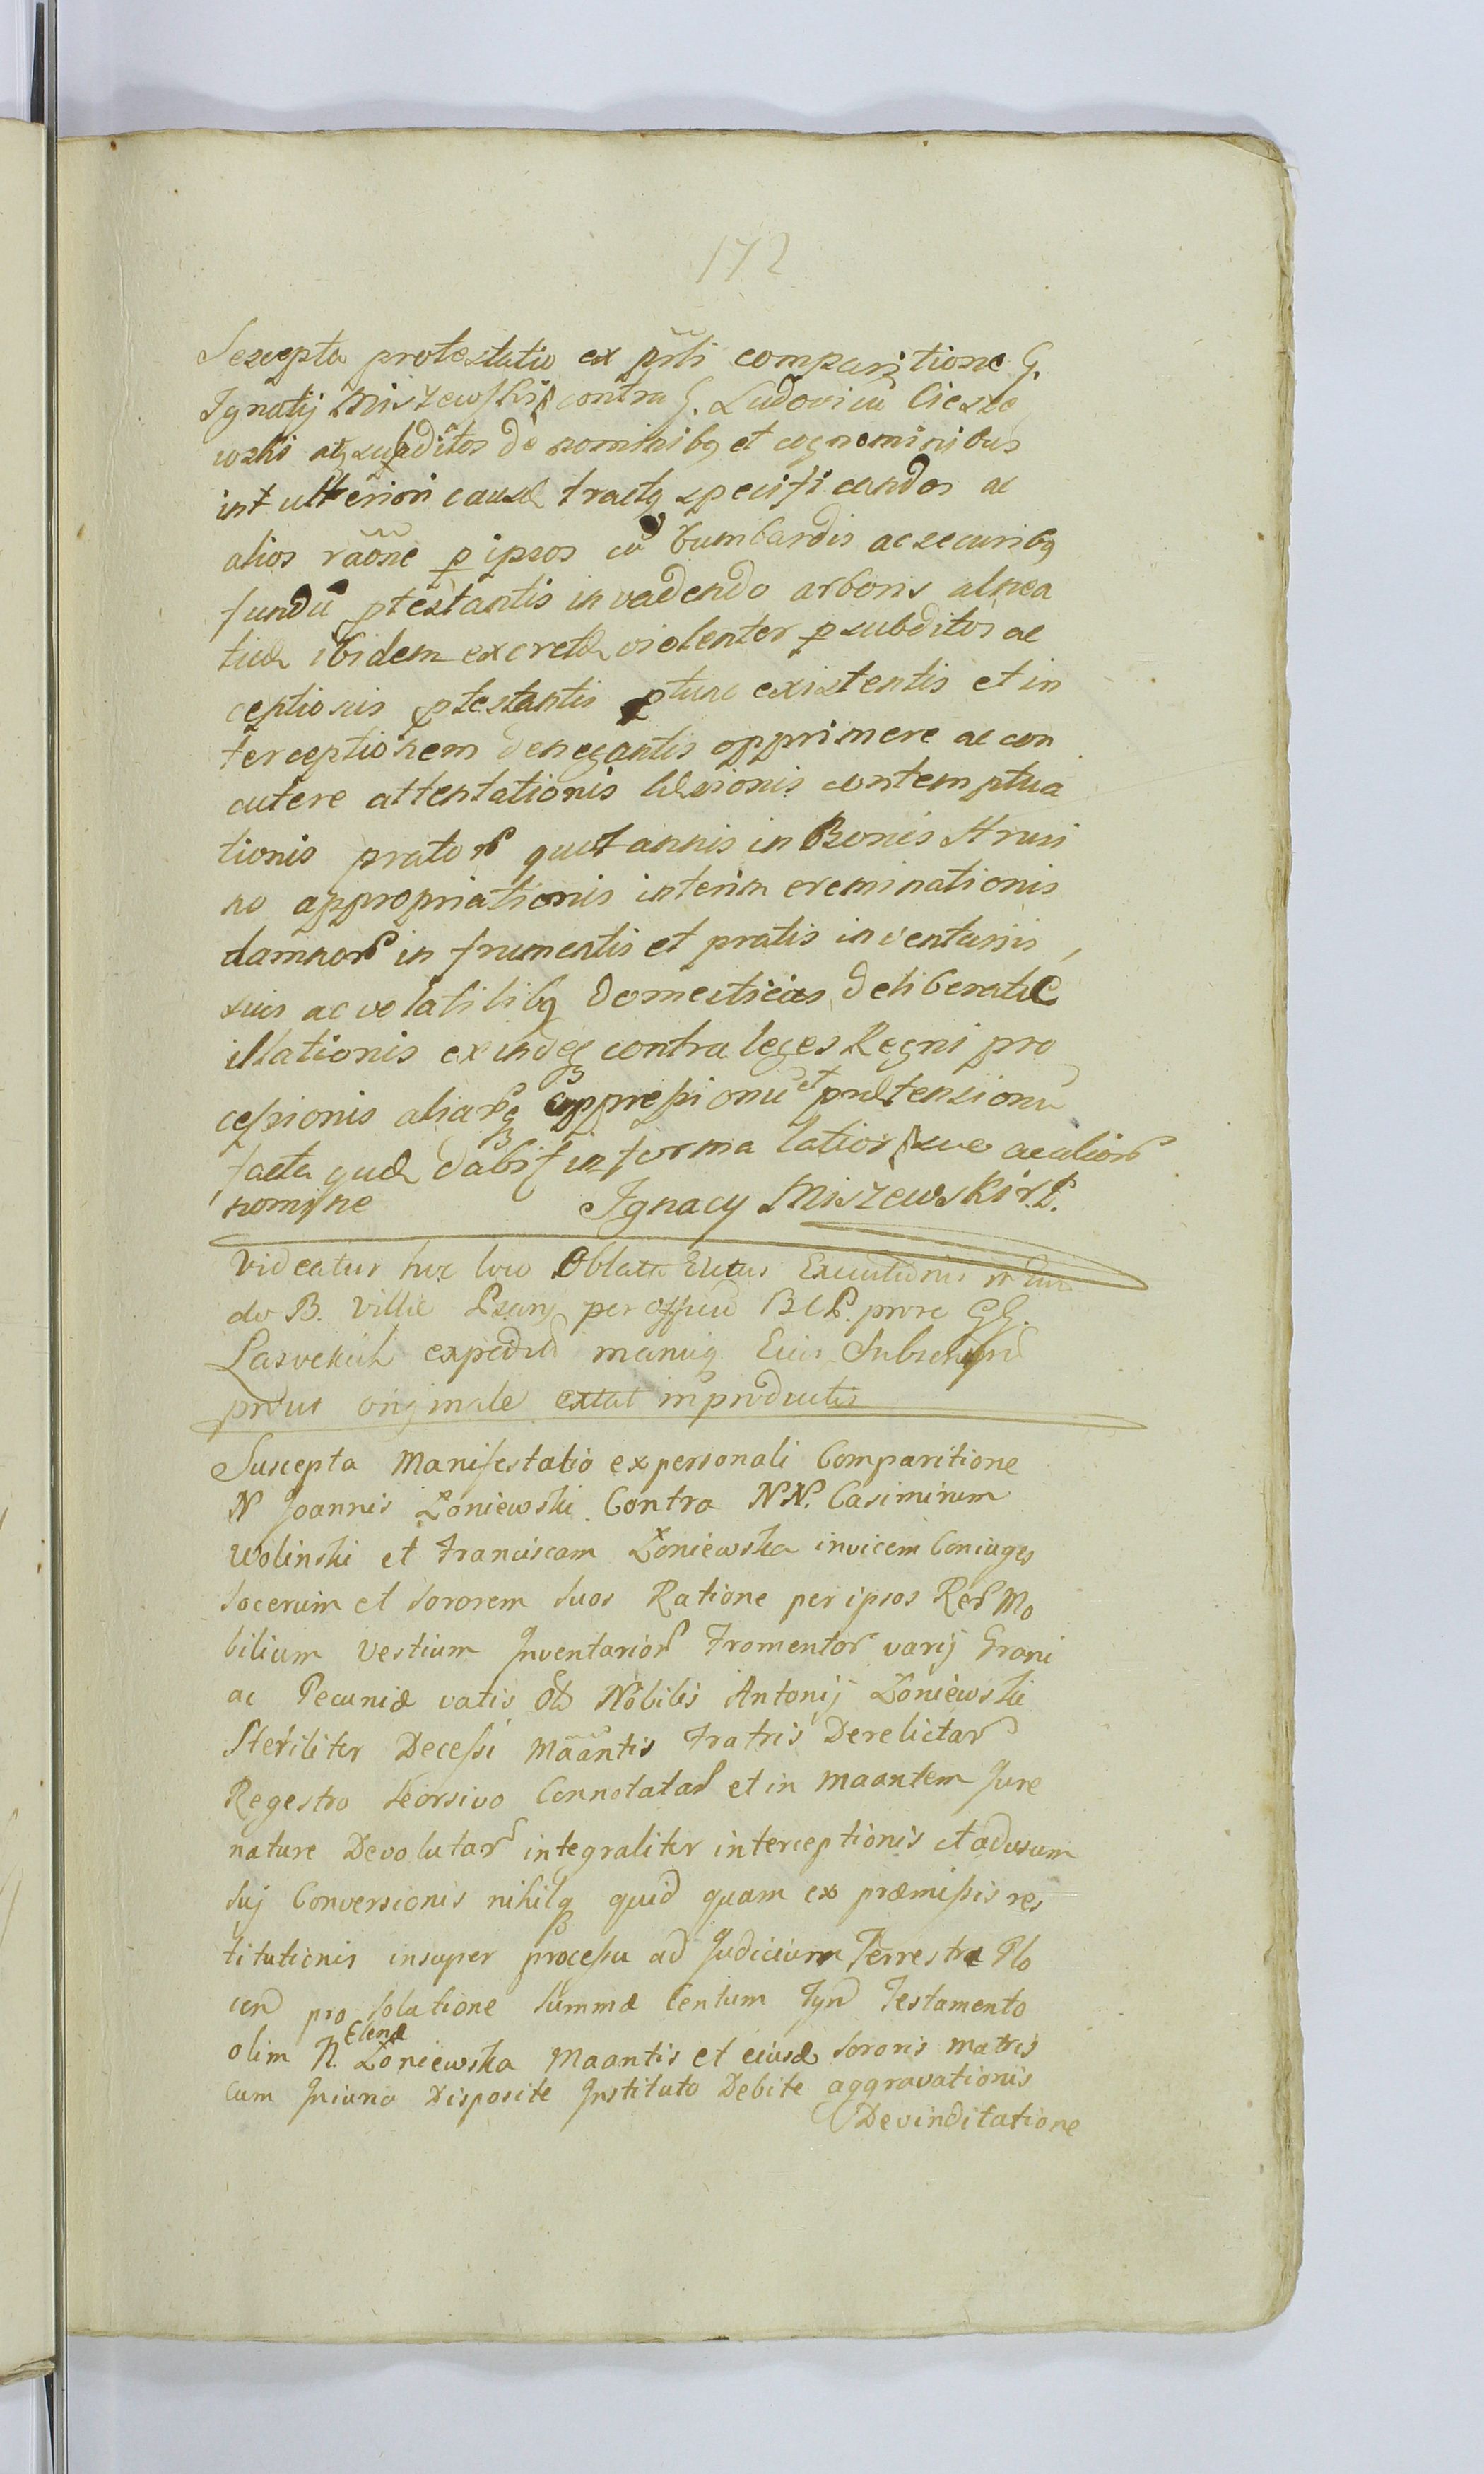 172
Suscepta protestatio ex prsli comparitione G.
Ignatij Miszewski contra G. Ludovicu Ciesze
wski atq subditos de nominibq et cognominibus
int ulteriori causæ tractq specificandos ac
alios raōne p ipsos cu bumbardis ac securibq
fundū ptestantis invadendo arboris alnea
ticæ ibidem excretæ violenter p subditos ac
ceptionis ptestantis ptunc existentis et in
terceptionem denegantis opprimere ac con
cutere attentationis læsionis contemptua
tionis prator quot annis in Bonis
no appropriationis interim ereminationis
damnor in frumentis et pratis inventarijs,
suis ac volatilibq domesticis deliberatæ
illationis exindeq contra leges Regni pro
cessionis aliarq oppressionū et prætensionu
facta quæ dabit in forma latiori suo ac alior
nomine Ignacy Miszewski
Videatur hoc loco Oblata Executionis
do B. Villæ per officiu prore GG.
expeditū manuq Eius Subscript
prout originale extat in productis
Suscepta Manifestatio ex personali Comparitione
N Joannis Zoniewski Contra NN. Casimirum
Wolinski et Franciscam Zoniewska invicem Coniuges
Socerum et Sororem Suos Ratione per ipsos Rer Mo
bilium Vestium Inventarior Fromentor varij Grani
ac Pecuniæ vatis Nobilis Antonij Zoniewski
Steriliter Decessi Maantis Fratris Derelictar
Regestro Seorsivo Connotatar et in Maantem Jure
nature Devolutar integraliter interceptionis et ad usum
Sui Conversionis nihilq quid quam ex præmissis res
titutionis insuper processu ad Judicium Terrestre Plo
cen pro solutione Summæ Centum Tyn Testamento
olim N. Elenæ Zoniewska Maantis et eiusd Sororis Matris
cum Iniuria Disposite Instituto Debite aggravationis
Devinditatione